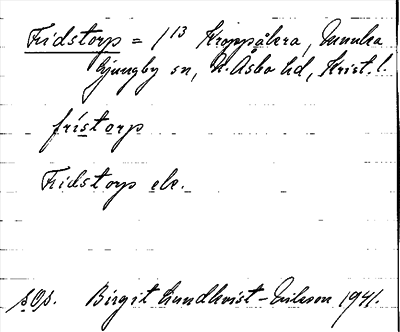 Fridstorp = 1/13 Kroppåkra, Munka
Ljungby sn, N. Åsbo hd, Krist. l.
frístorp
Fridstorp ek.
sOs. Birgit Lundkvist-Eriksson 1941.